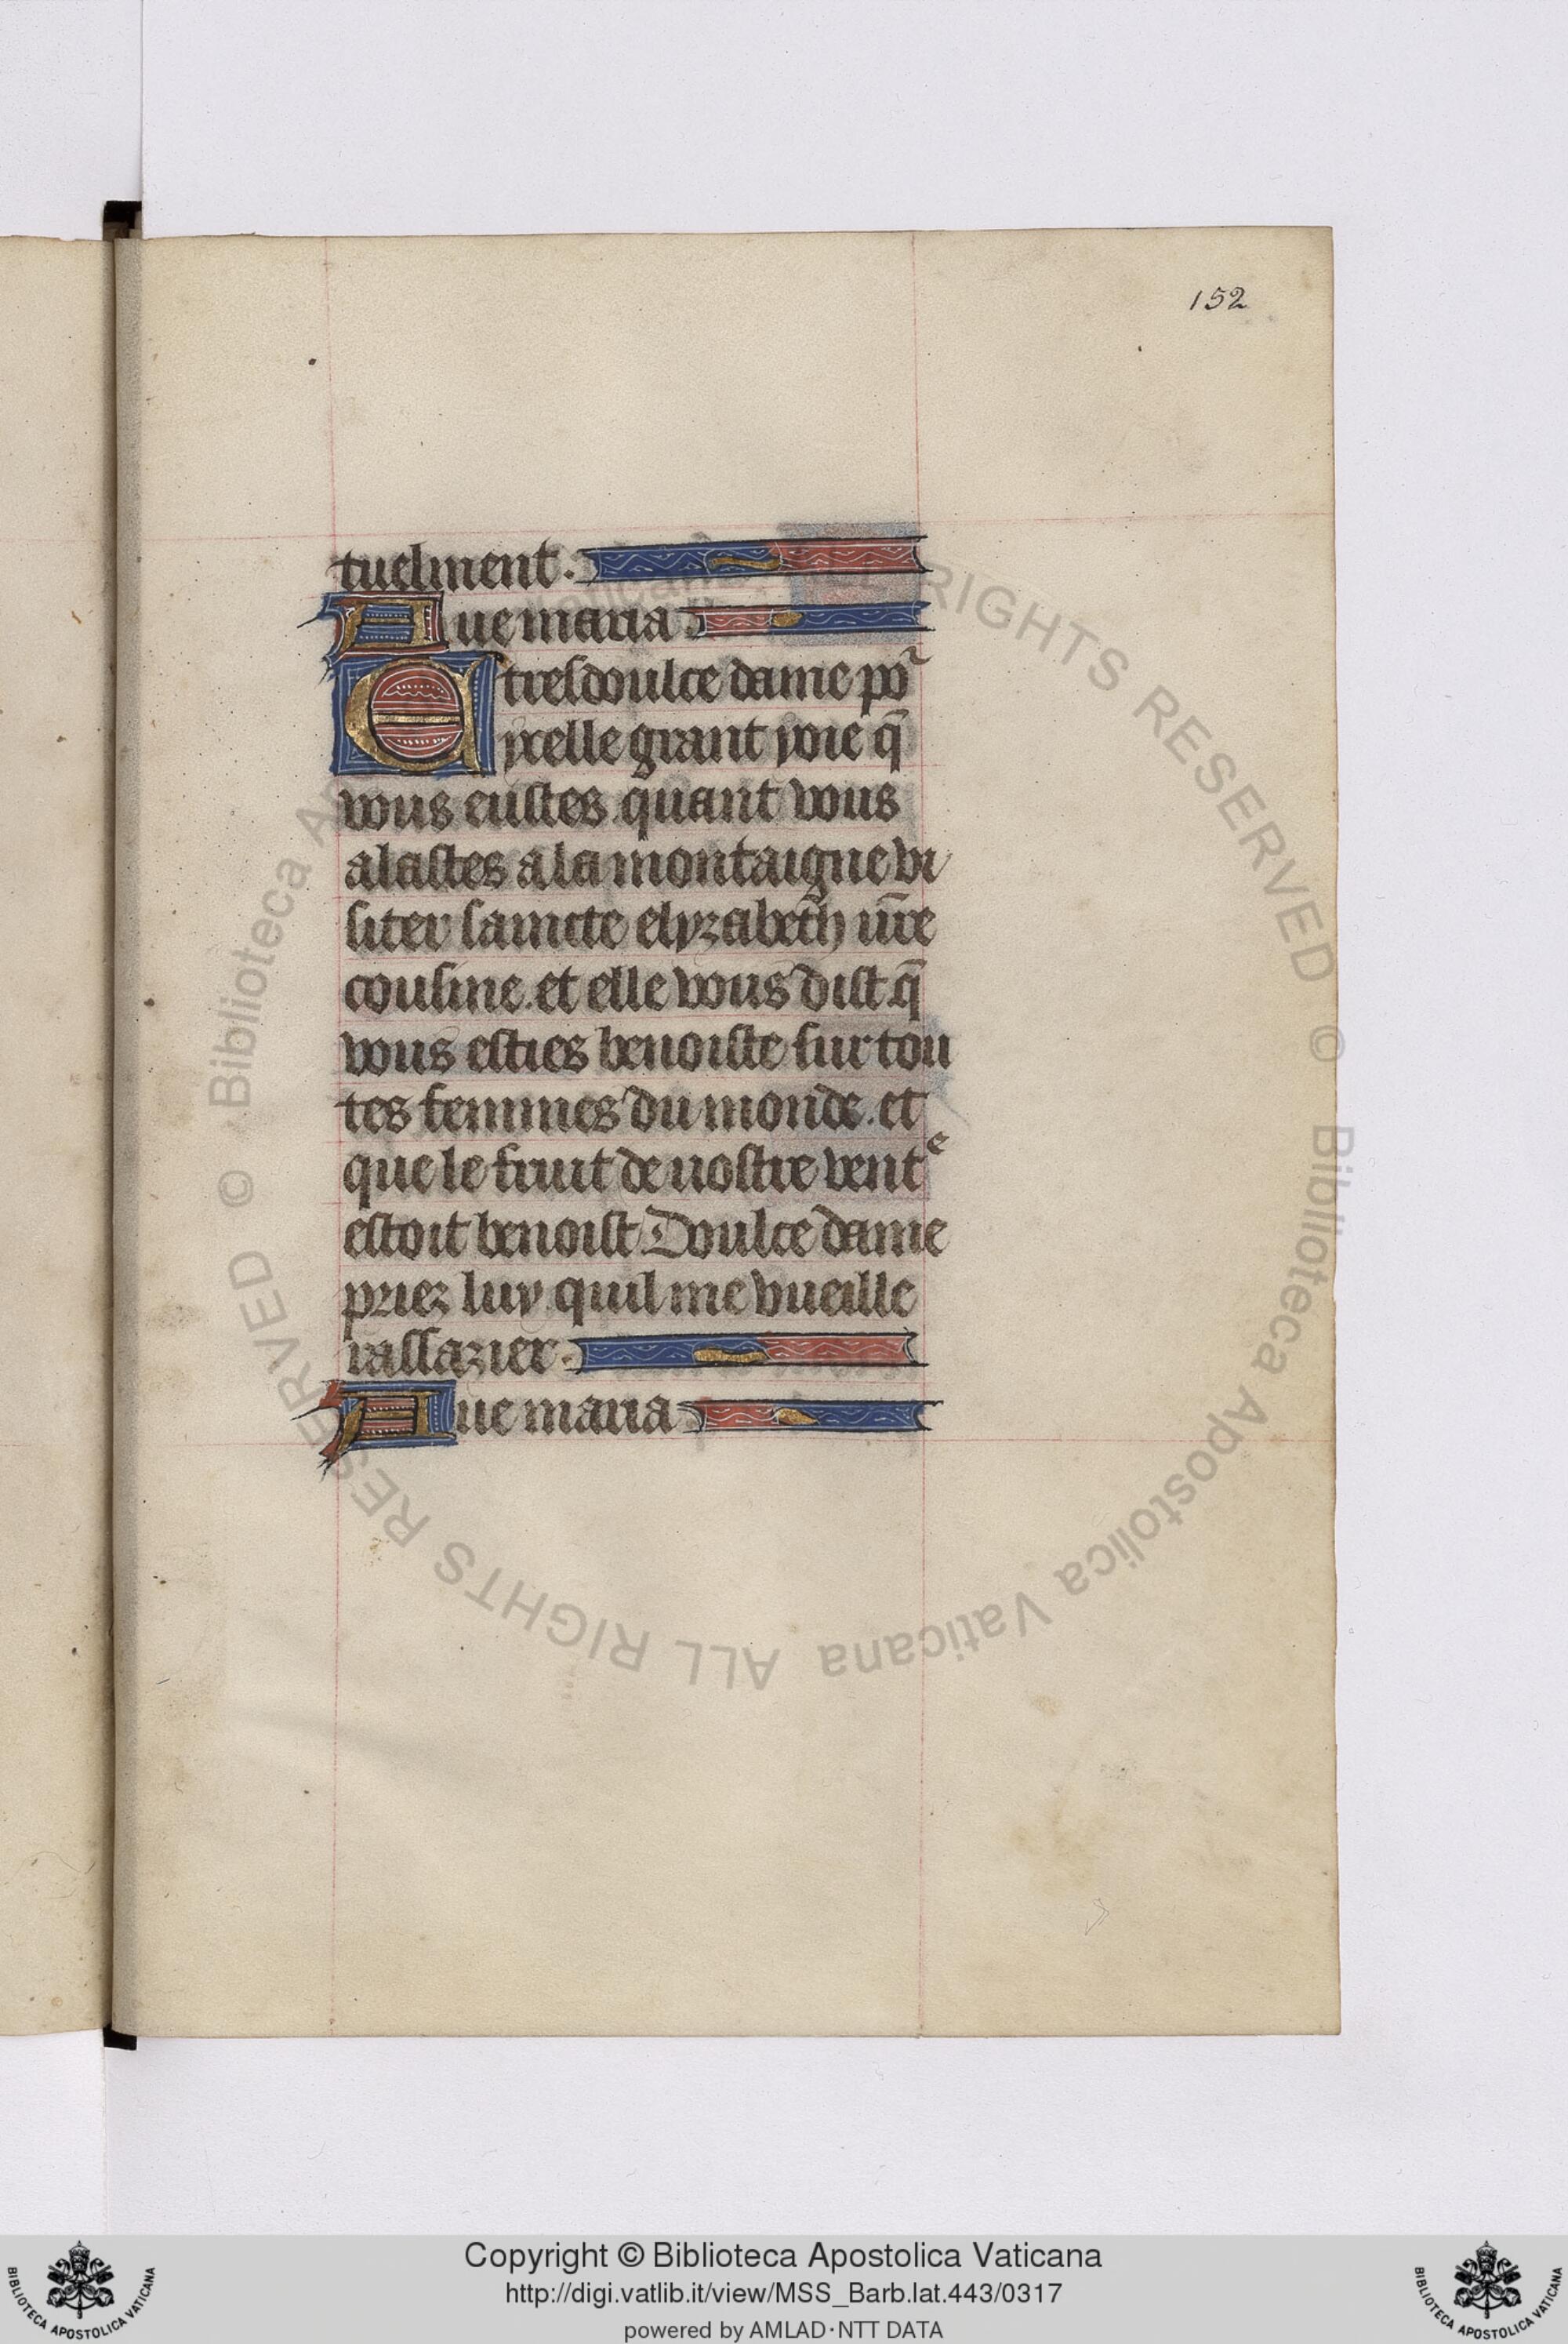 152
tuelment.
Aue maria
E tresdoulce dame po᷑
ycelle grant joie q̄
vous eustes quant vous
alastes a la montaigne vi
siter saincte elyzabeth vr̄e
cousine. et elle vous dist q̄
vous esties benoiste sur tou
tes femmes du monde. et
que le fruit de vostre ventᵉ
estoit benoist Doulce dame
priez luy quil me vueille
rassazier.
Aue maria
© Biblioteca Apostolica Vaticana ALL RIGHTS RESERVED © Biblioteca Apostolica Vaticana ALL RIGHTS RESERVED
Copyright © Biblioteca Apostolica Vaticana
http://digi.vatlib.it/view/MSS_Barb.lat.443/0317
powered by AMLAD·NTT DATA
BIBLIOTECA APOSTOLICA VATICANA
BIBLIOTECA APOSTOLICA VATICANA